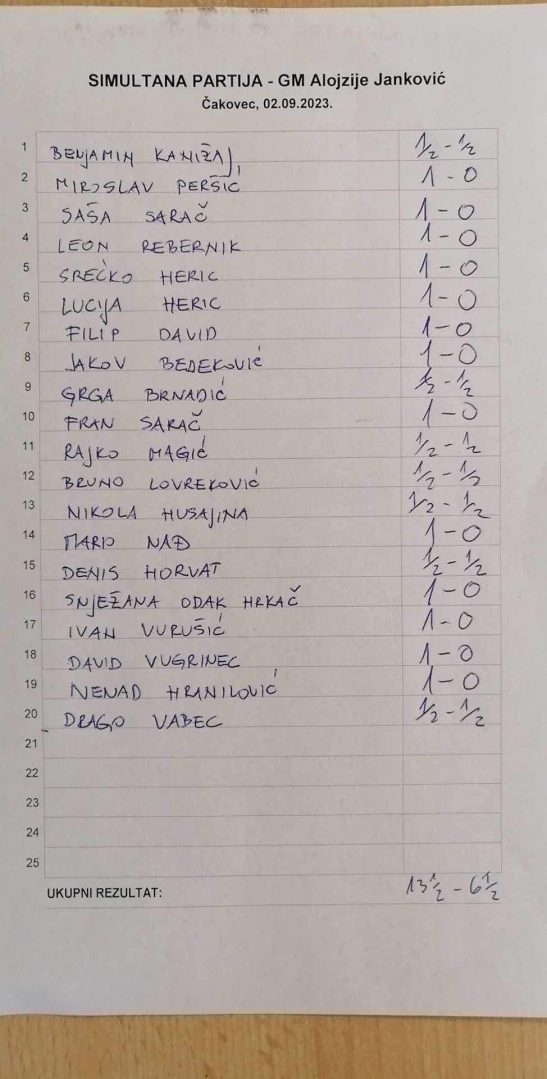 SIMULTANA PARTIJA - GM Alojzije Janković
Čakovec, 02.09.2023.
1 BENJAMIN KANIŽAJ 1/2 - 1/2
2 MIROSLAV PERŠIĆ 1 - 0
3 SAŠA SARAČ 1 - 0
4 LEON REBERNIK 1 - 0
5 SREĆKO HERIC 1 - 0
6 LUCIJA HERIC 1 - 0
7 FILIP DAVID 1 - 0
8 JAKOV BEDEKOVIĆ 1 - 0
9 GRGA BRNADIĆ 1/2 - 1/2
10 FRAN SARAČ 1 - 0
11 RAJKO MAGIĆ 1/2 - 1/2
12 BRUNO LOVREKOVIĆ 1/2 - 1/2
13 NIKOLA HUSAJINA 1/2 - 1/2
14 MARIO NAĐ 1 - 0
15 DENIS HORVAT 1/2 - 1/2
16 SNJEŽANA ODAK HRKAČ 1 - 0
17 IVAN VURUŠIĆ 1 - 0
18 DAVID VUGRINEC 1 - 0
19 NENAD HRANILOVIĆ 1 - 0
20 DRAGO VABEC 1/2 - 1/2
21
22
23
24
25
UKUPNI REZULTAT: 13 1/2 - 6 1/2